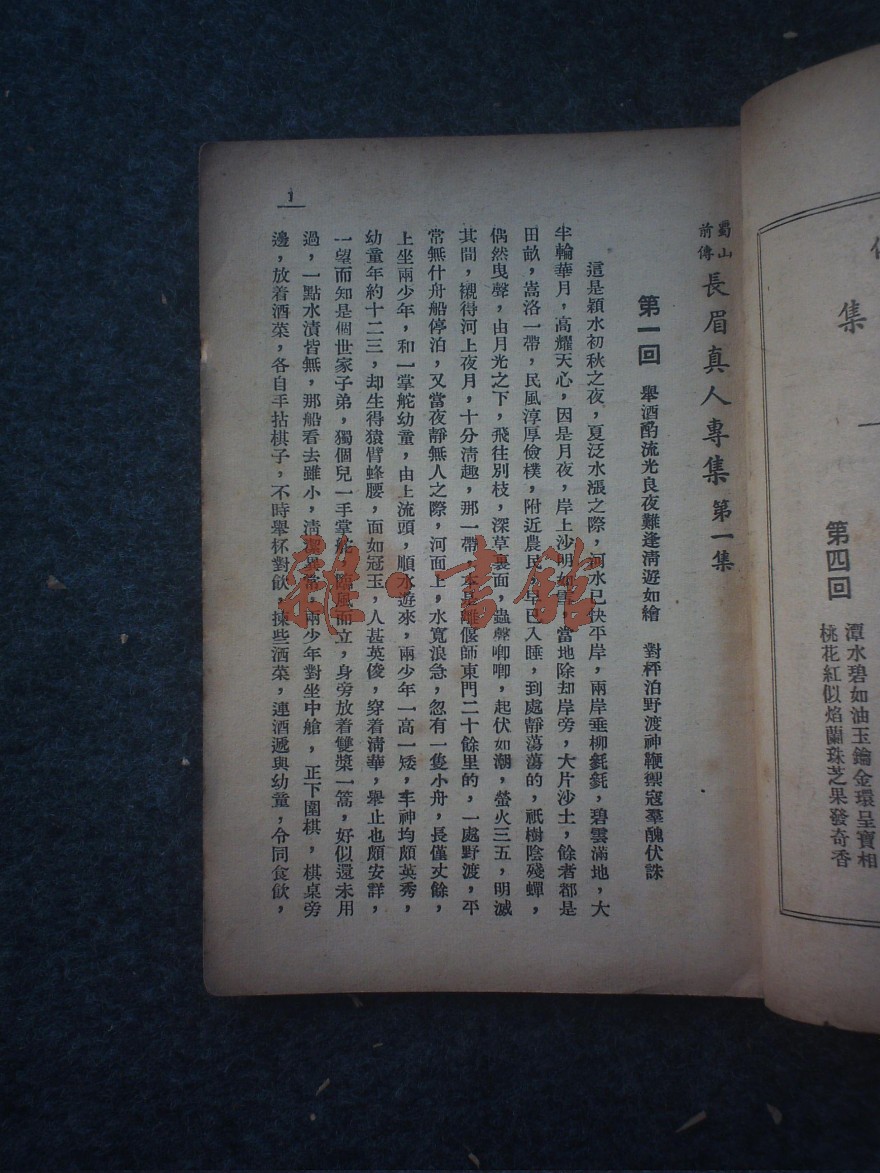 集
第四回
潭水碧如油玉鑰金環呈寶相
桃花紅似焰蘭珠芝果發奇香
蜀山
前傳
長眉真人專集 第一集
第一回 舉酒酌流光良夜難逢清遊如繪 對枰泊野渡神鞭禦寇羣醜伏誅
這是潁水初秋之夜，夏泛水漲之際，河水已快平岸，兩岸垂柳毿毿，碧雲滿地，大
半輪華月，高耀天心，因是月夜，岸上沙明如雪，當地除却岸旁，大片沙土，餘者都是
田畝，嵩洛一帶，民風淳厚儉樸，附近農民，早已入睡，到處靜蕩蕩的，祇樹陰殘蟬，
偶然曳聲，由月光之下，飛往別枝，深草裏面，蟲聲唧唧，起伏如潮，螢火三五，明滅
其間，襯得河上夜月，十分清趣，那一帶，本是離偃師東門二十餘里的，一處野渡，平
常無什舟船停泊，又當夜靜無人之際，河面上，水寬浪急，忽有一隻小舟，長僅丈餘，
上坐兩少年，和一掌舵幼童，由上流頭，順水遊來，兩少年一高一矮，丰神均頗英秀，
幼童年約十二三，却生得猿臂蜂腰，面如冠玉，人甚英俊，穿着清華，舉止也頗安詳，
一望而知是個世家子弟，獨個兒一手掌舵，臨風而立，身旁放着雙槳一篙，好似還未用
過，一點水漬皆無，那船看去雖小，清潔異常，兩少年對坐中艙，正下圍棋，棋桌旁
邊，放着酒菜，各自手拈棋子，不時舉杯對飲，揀些酒菜，連酒遞與幼童，令同食飲，
1
雜·書館